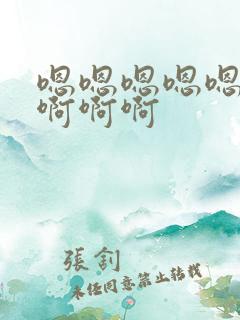 嗯嗯嗯嗯嗯
啊啊啊
張釗
未经同意禁止转载